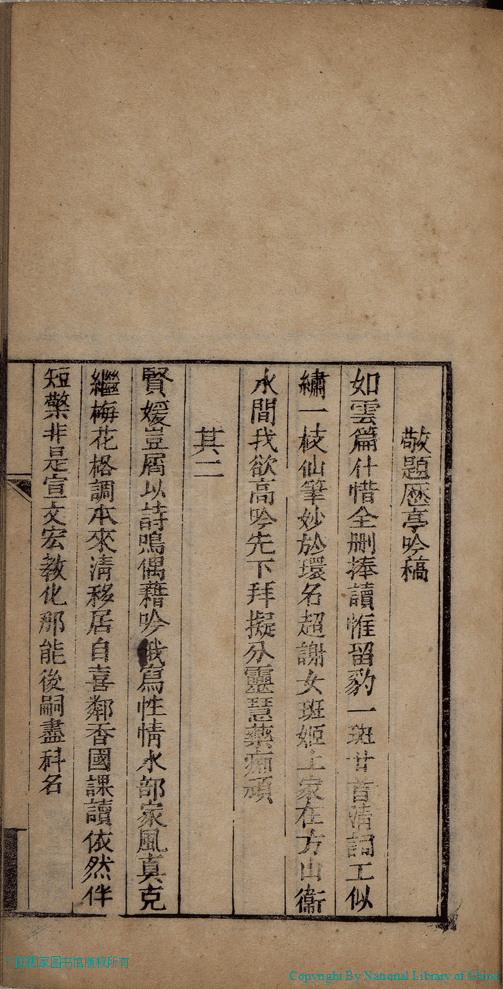 敬題歷亭吟稿
如雲篇什惜全刪捧讀惟留豹一斑廿首清詞工似
繡一枝仙筆妙於環名超謝女班姬上家在方山衞
水間我欲高吟先下拜擬分靈慧藥痴頑
其二
賢媛豈屑以詩鳴偶藉吟哦寫性情水部家風真克
繼梅花格調本來清移居自喜鄰香國課讀依然伴
短檠非是宣文宏教化那能後嗣盡科名
中国国家图书馆版权所有
Copyright By National Library of China